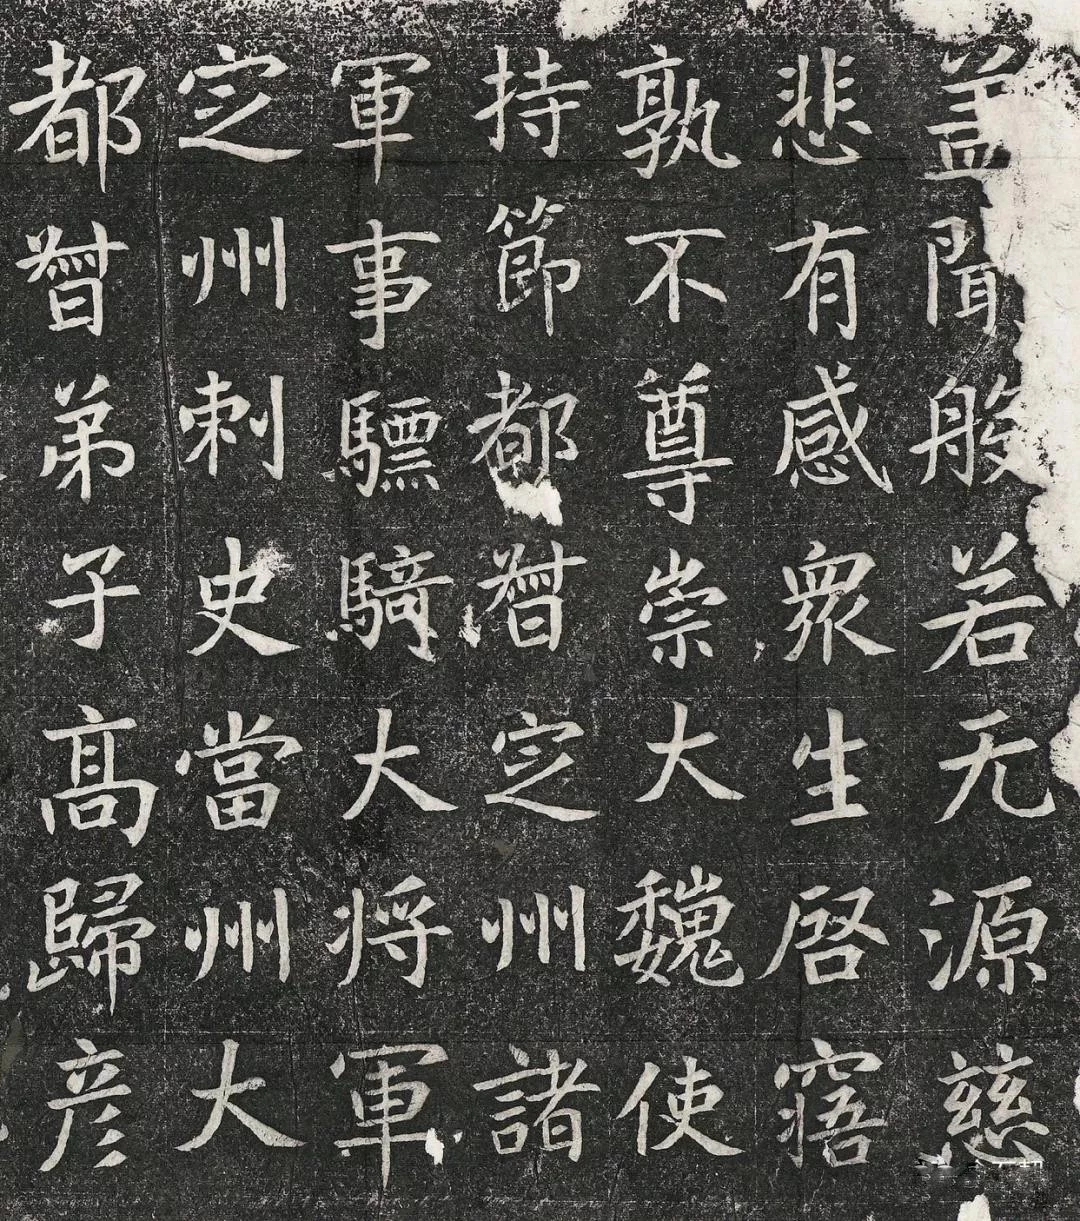 盖聞般若无源慈
悲有感衆生啓寤
孰不尊崇大魏使
持節都督定州諸
軍事驃騎大将軍
定州刺史當州大
都督弟子高歸彦